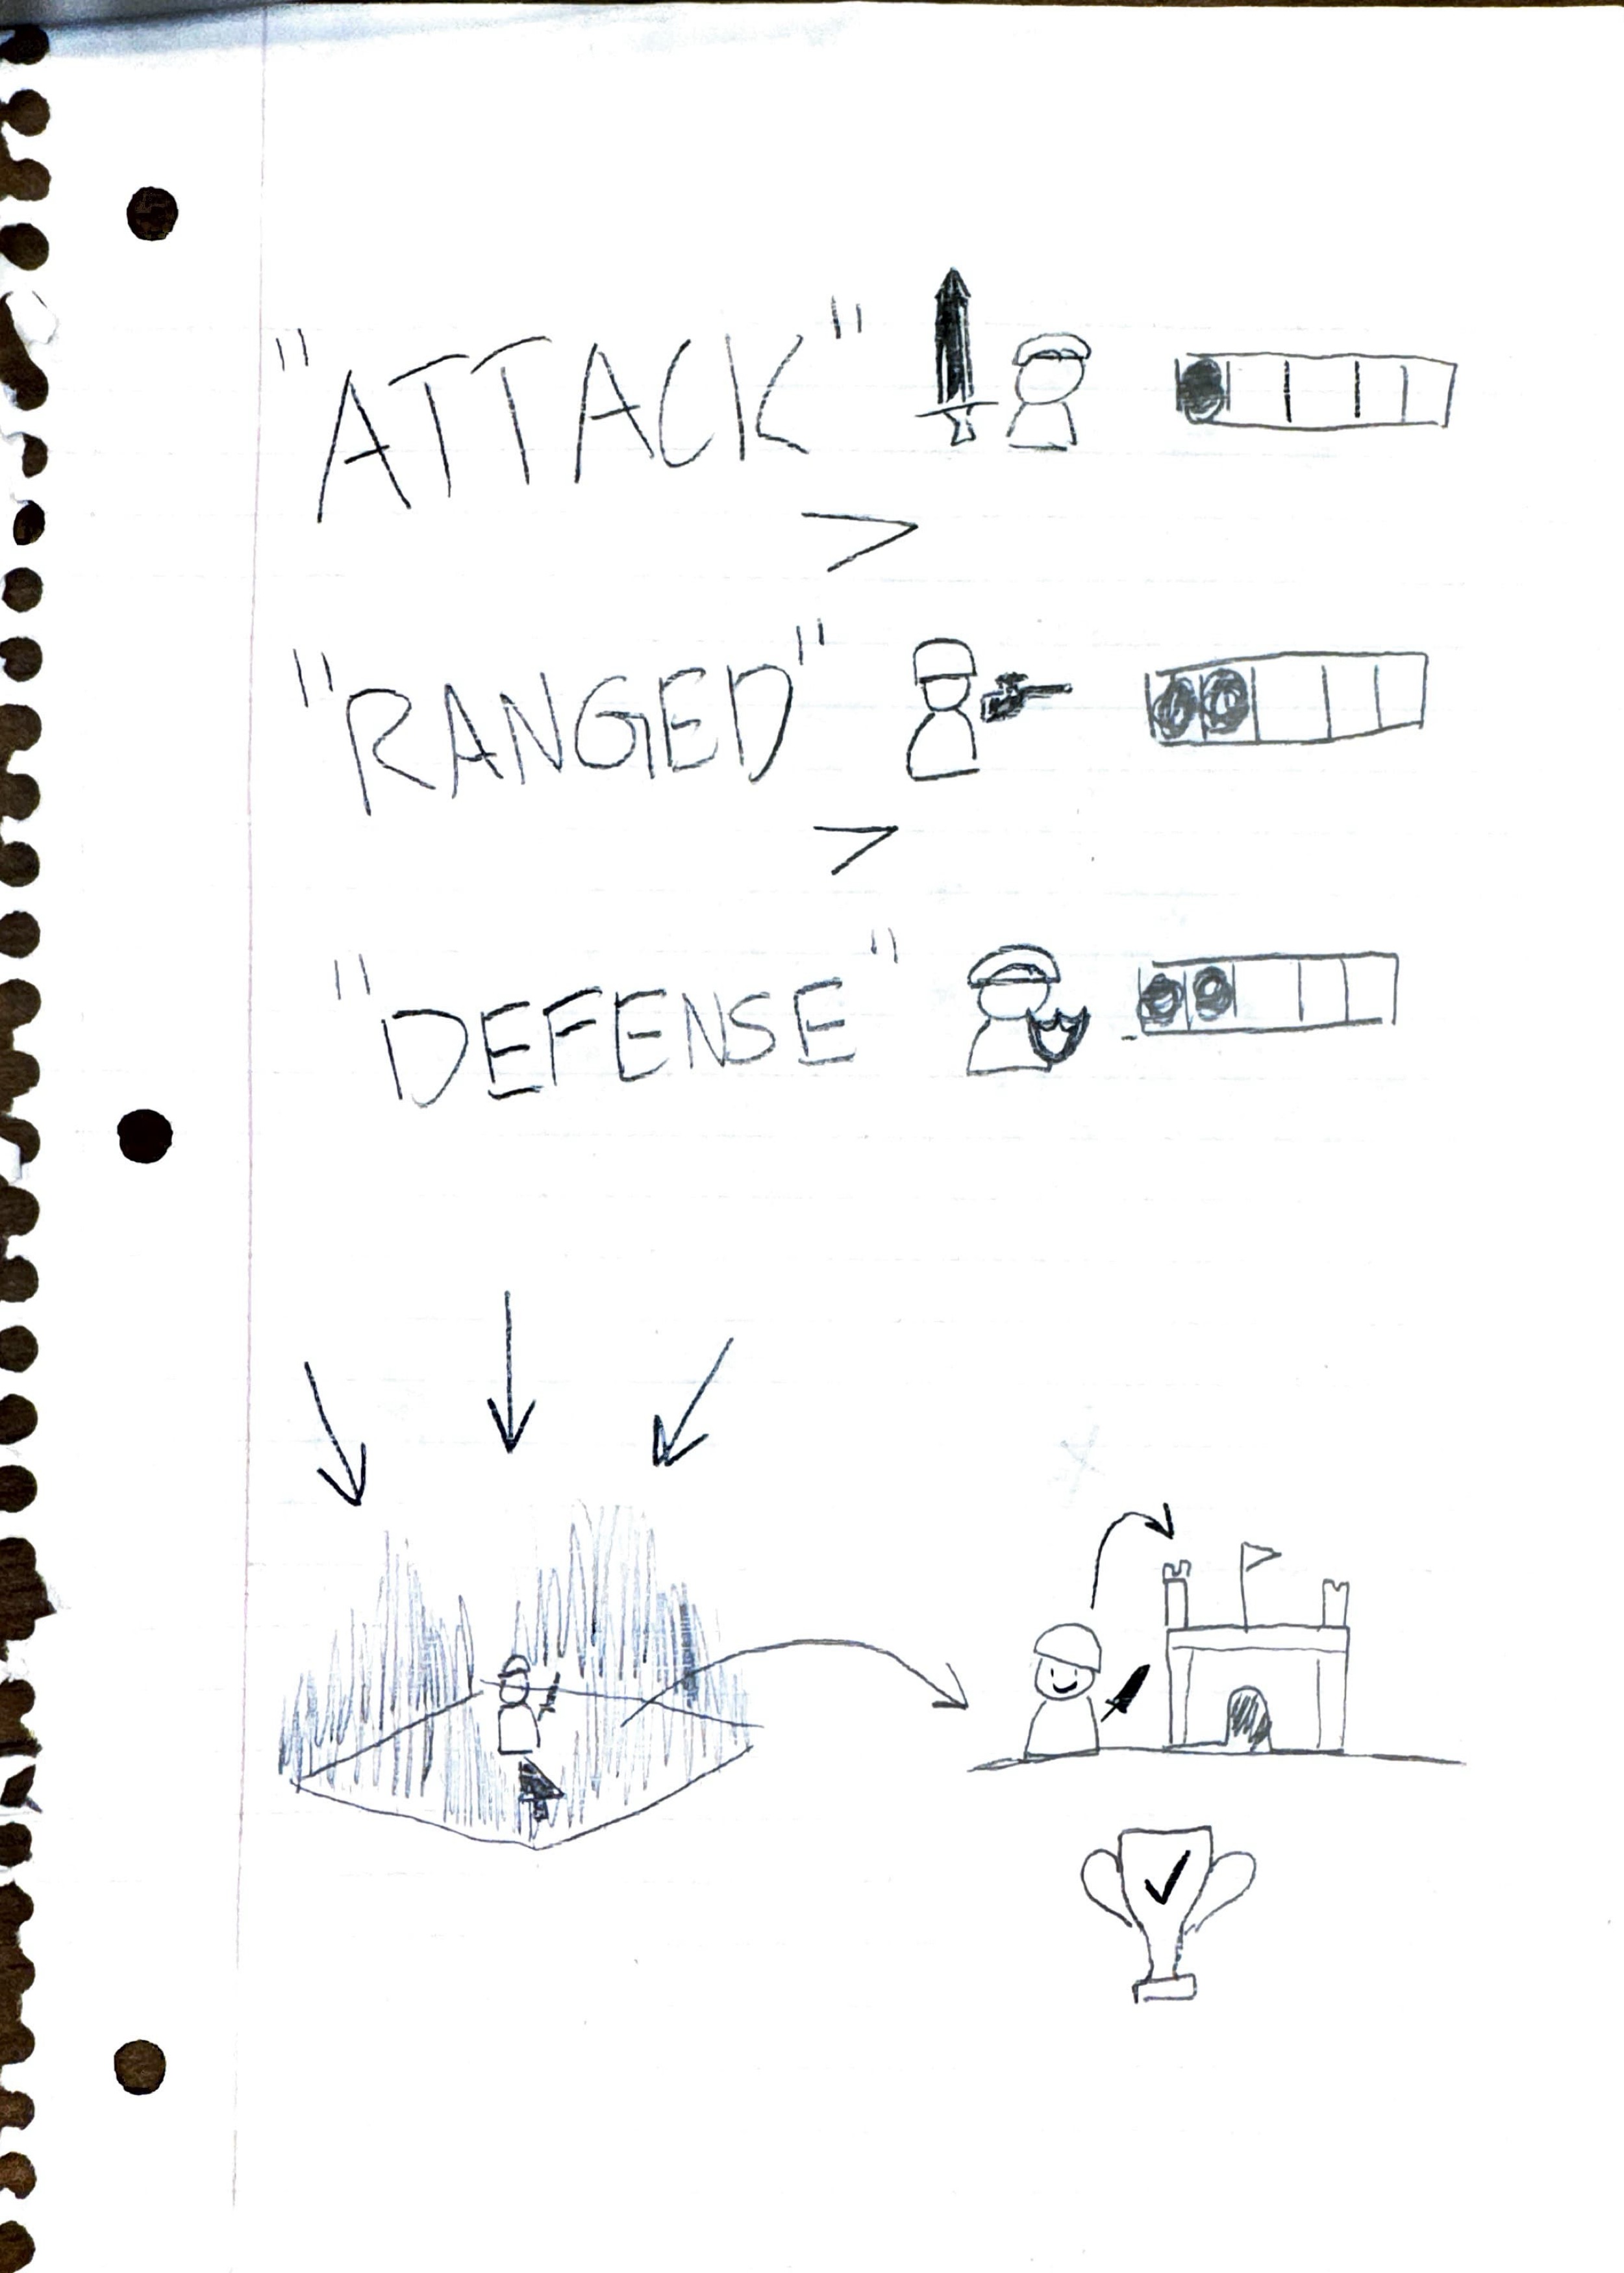 "ATTACK"
>
"RANGED"
>
"DEFENSE"